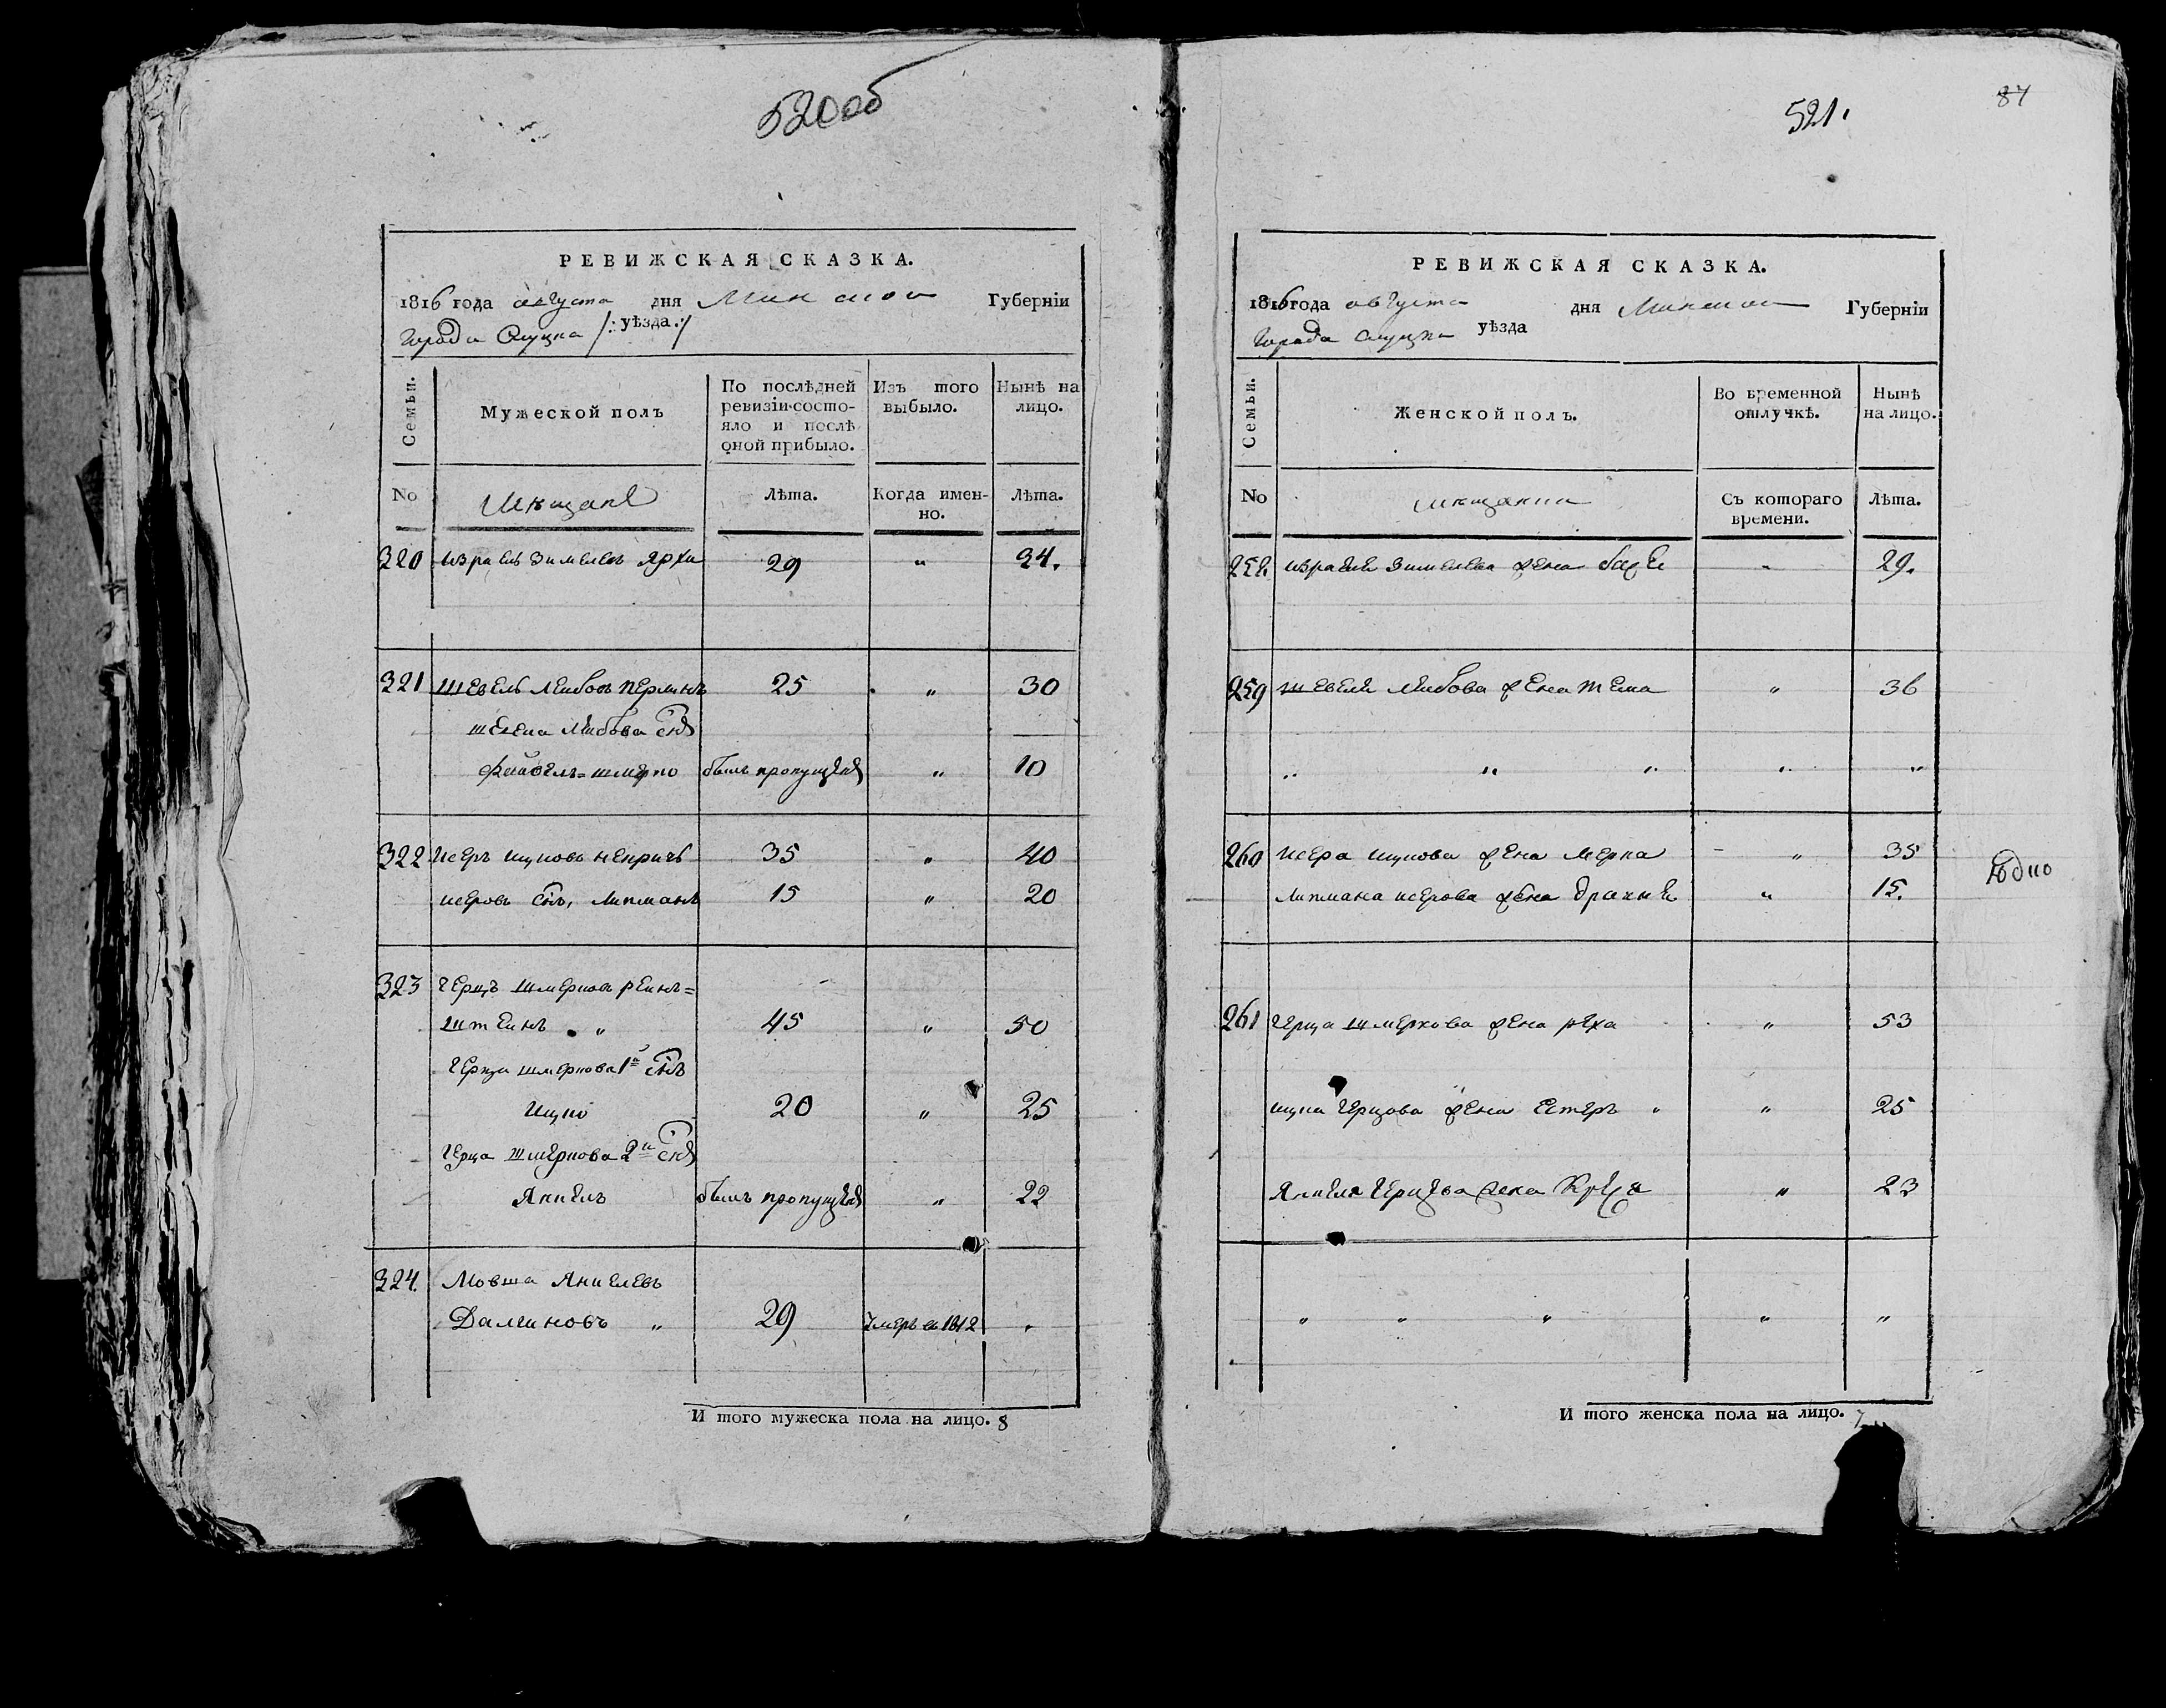 520об
РЕВИЖСКАЯ СКАЗКА.
1816 года августа дня Минской Губерніи
города Слуцка /: уѣзда :/
Семьи.
Мужеской полъ
По послѣдней ревизіи состо-
яло и послѣ
оной прибыло.
Изъ того
выбыло.
Нынѣ на
лицо.
No
Мѣщане
Лѣта.
Когда имен-
но.
Лѣта.
320 израель Зимелевъ 29 " 34.
321 Шевель Лейбовъ перлинъ 25 " 30
Лейбова снъ
Файвель=шмерко былъ пропущенъ " 10
322 Исеръ ицковъ 35 " 40
исеровъ снъ, Липманъ 15 " 20
323 Герцъ Шмерковъ реинъ=
Штеинъ " 45 " 50
Герца шмеркова 1й снъ
Ицко 20 " 25
Герца Шмеркова 2й снъ
Янкель былъ пропущенъ " 22
324. Мовша Янкелевъ
29 Умеръ в 1812 "
И того мужеска пола на лицо. 8
87
521.
РЕВИЖСКАЯ СКАЗКА.
1816 года августа дня Минской Губерніи
города слуцка уѣзда
Семьи.
Женской полъ.
Во временной
отлучкѣ.
Нынѣ
на лицо.
No
мѣщанки
Съ котораго
времени.
Лѣта.
258 израеля Зимелева жена " 29.
259 Шевеля Лейбова жена 36
" " " " "
260 Исера ицкова жена Мерка " 35
Липмана исерова жена " 15.
261 Герца Шмеркова жена реха " 53
ицка Герцова жена Естеръ " " 25
Янкеля Герцова жена " 23
" " " " "
И того женска пола на лицо. 7